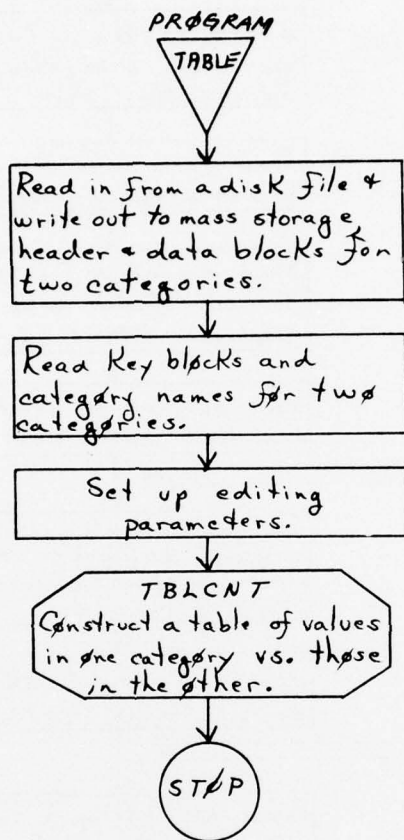 PRØGRAM
TABLE
Read in from a disk file &
write out to mass storage
header & data blocks for
two categories.
Read Key bløcks and
categøry names før twø
categøries.
Set up editing
parameters.
TBLCNT
Cønstruct a table of values
in øne categøry vs. thøse
in the øther.
STØP